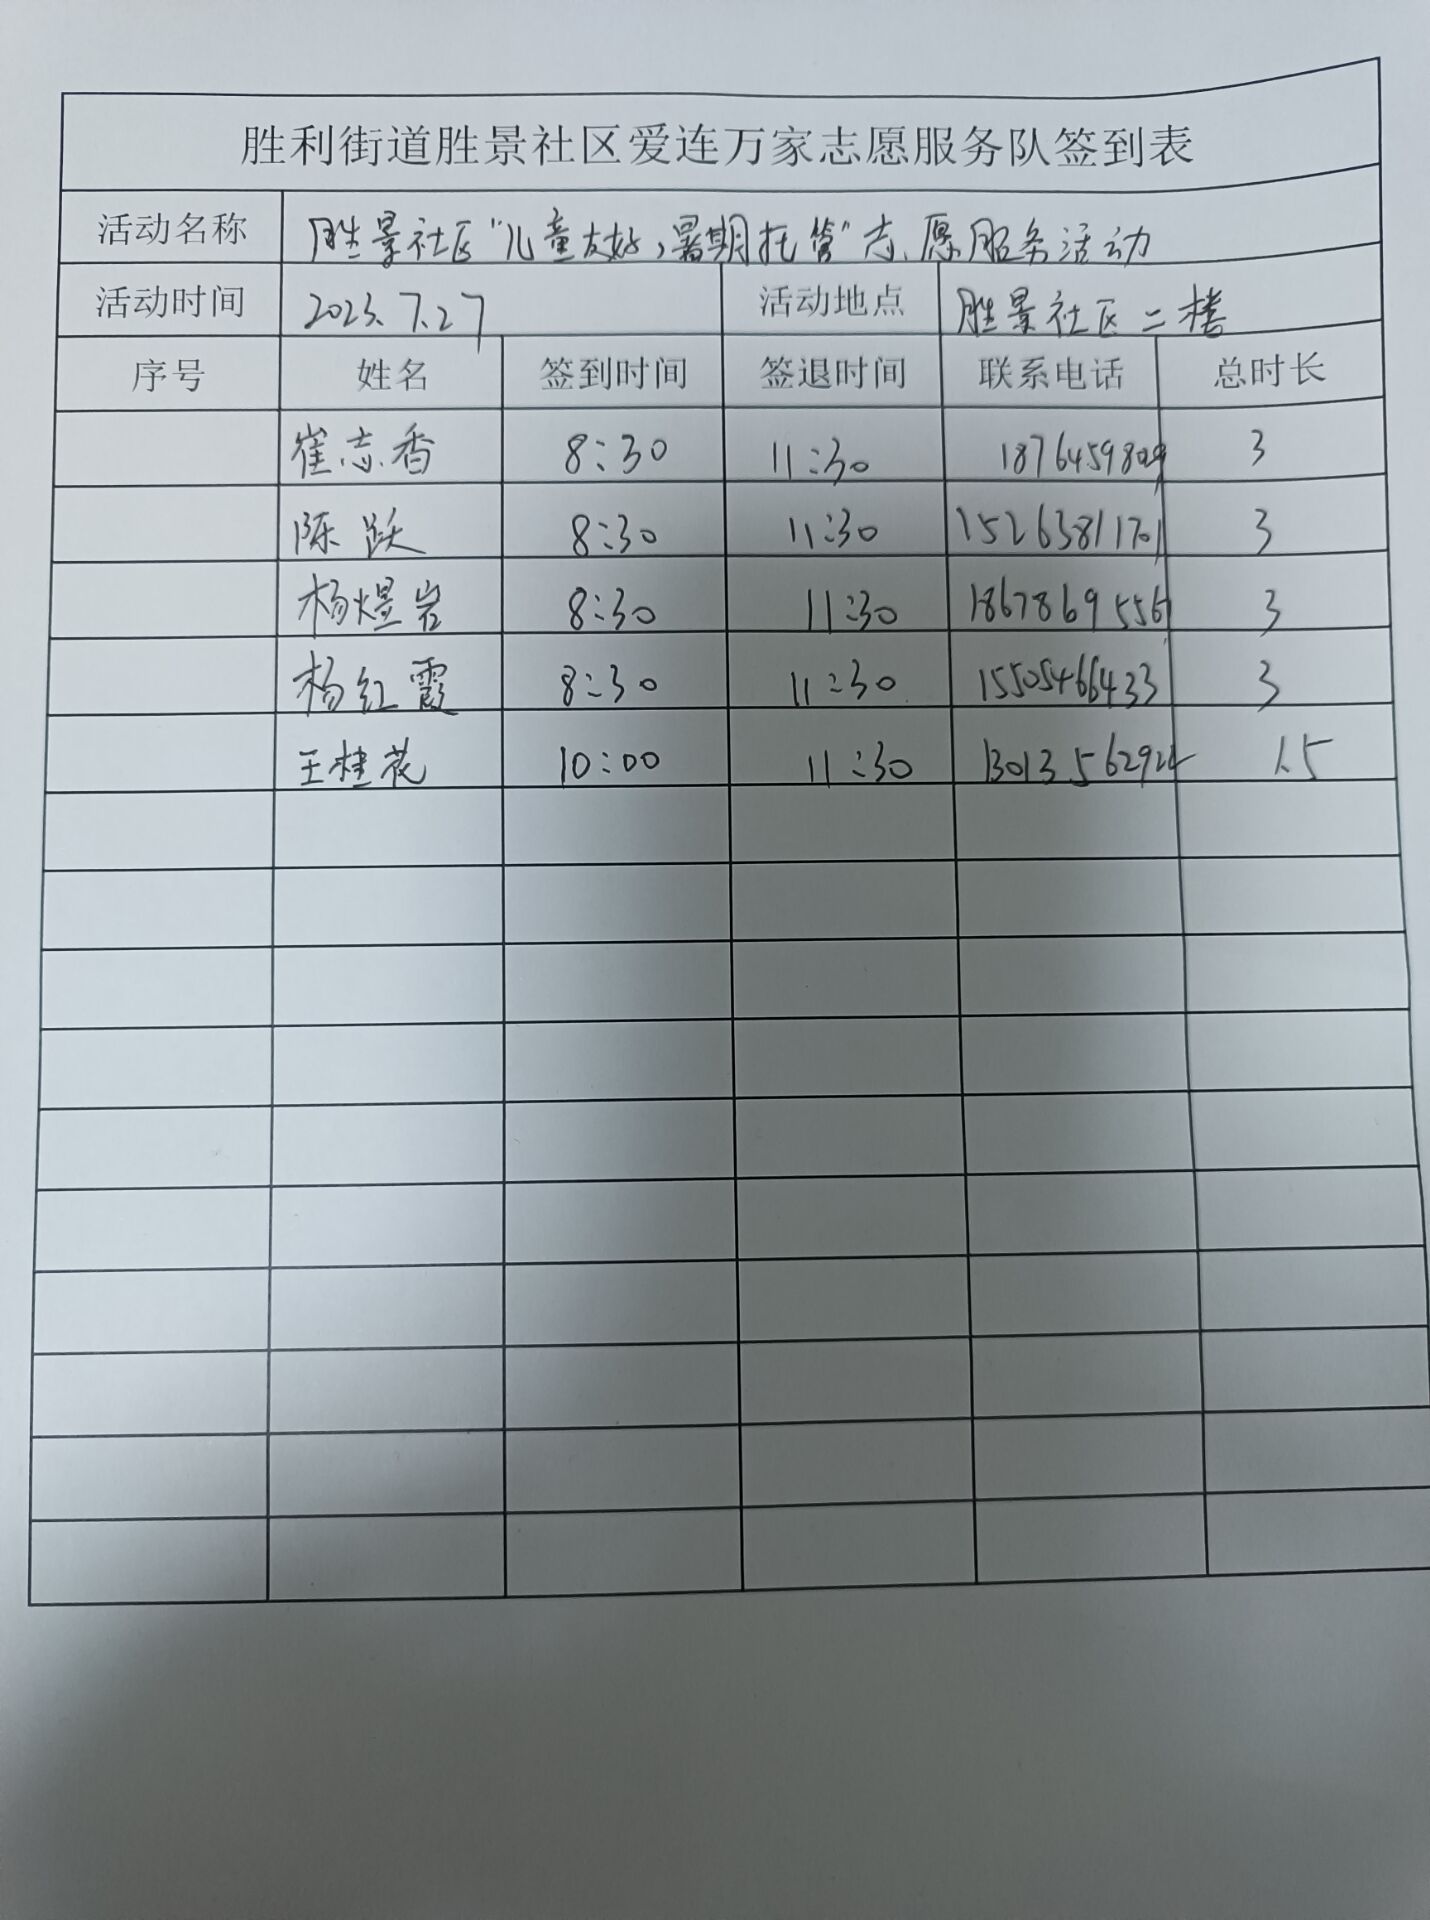 胜利街道胜景社区爱连万家志愿服务队签到表
活动名称 胜景社区“儿童友好,暑期托管”志愿服务活动
活动时间 2023.7.27 活动地点 胜景社区二楼
序号 姓名 签到时间 签退时间 联系电话 总时长
崔志香 8:30 11:30 3
陈跃 8:30 11:30 15263811701 3
杨煜岩 8:30 11:30 18678695561 3
杨红霞 8:30 11:30 15505466433 3
王桂花 10:00 11:30 1.5